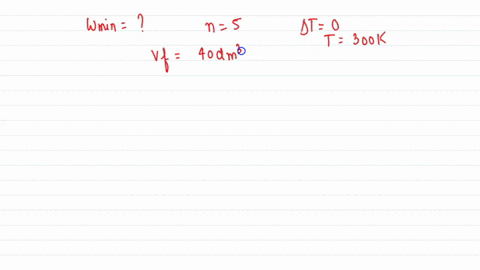 Wmin = ? n = 5 ΔT = 0
T = 300K
Vf = 40dm³